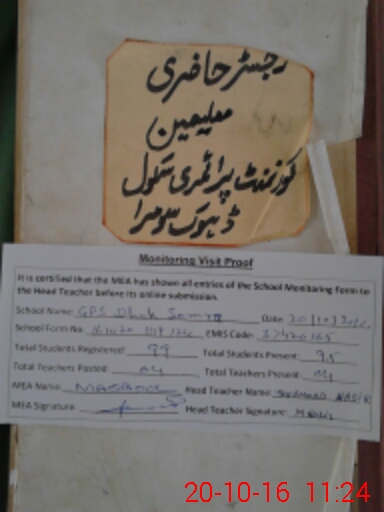 رجسٹر حاضری
معلیمین
گورنمنٹ پرائمری سکول
ڈہوک سومرا
Monitoring Visit Proof
It is certified that the MEA has shown all entries of the School Monitoring Form to
the Head Teacher before its online submission.
School Name: GPS Dhok Somra Date: 20/10/
School Form No: EMIS Code:
Total Students Registered: 99 Total Students Present: 95
Total Teachers Posted: 04 Total Teachers Present: 04
MEA Name: Head Teacher Name:
MEA Signature: Head Teacher Signature:
20-10-16 11:24